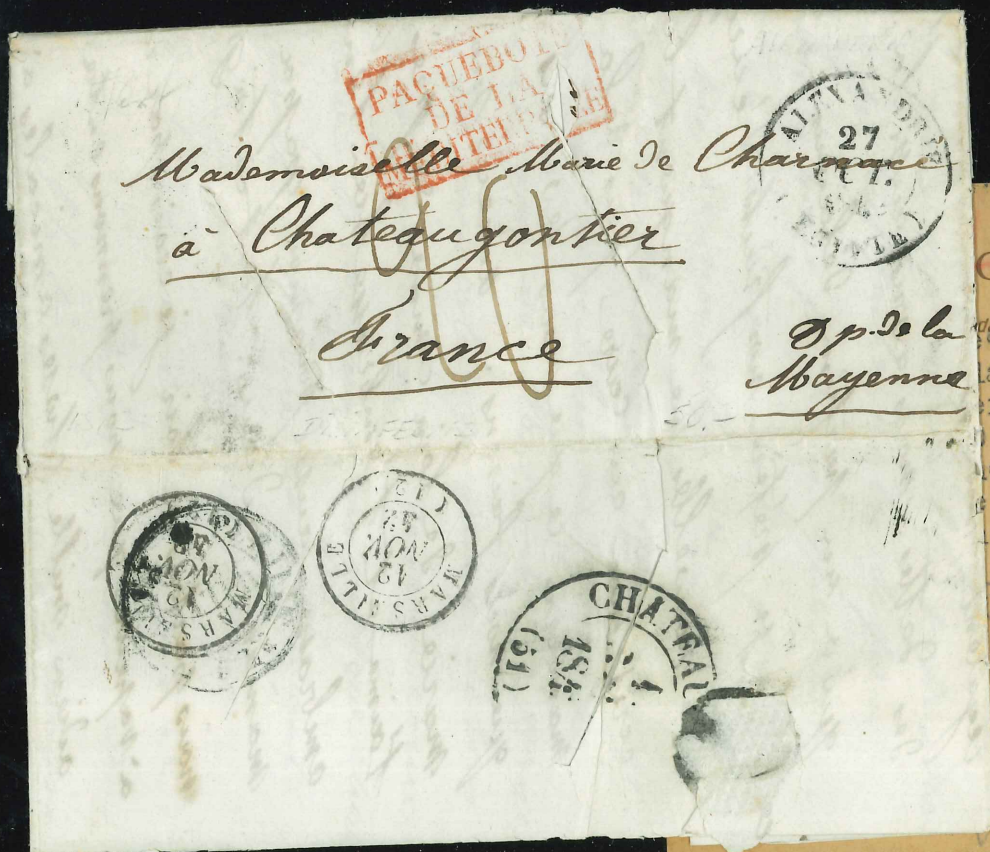 PAQUEBOTS
DE LA
MÉDITERRANÉE
ALEXANDRIE
27
OCT.
(EGYPTE)
Mademoiselle Marie de Charnacé
à Chateaugontier
France
Dp. de la
Mayenne
10
50.-
MARSEILLE
12
NOV.
42
(12)
MARSEILLE
12
NOV.
42
CHATEAU
184
(51)